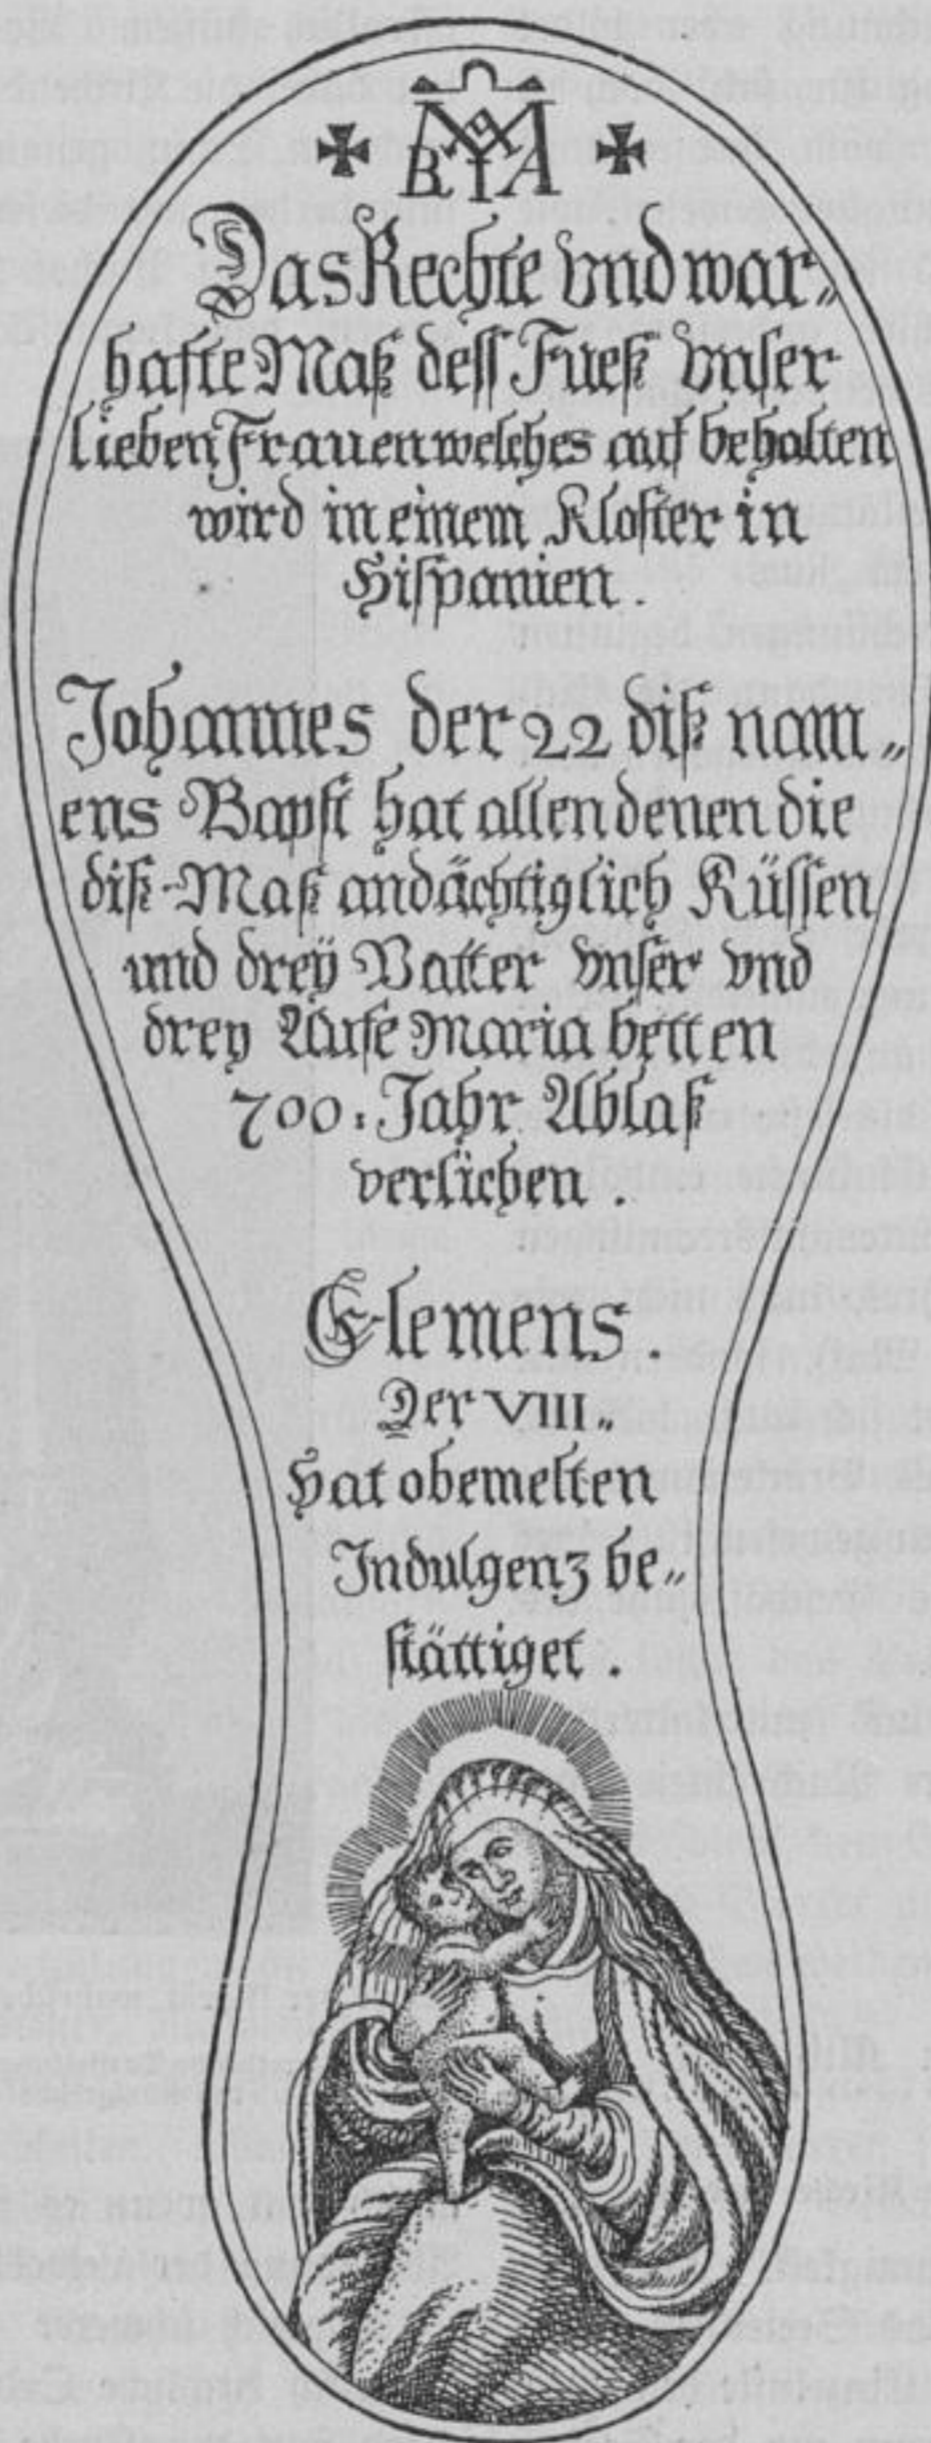 Das Rechte vnd war„
hafte Maß dess Fueß vnser
lieben Frauen welches auf behalten
wird in einem Kloster in
Hispanien.
Johannes der 22 diß nam„
ens Bapst hat allen denen die
diß Maß andächtiglich Küssen
und dreÿ Vatter vnser vnd
drey Aufe Maria betten
700: Jahr Ablaß
verlichen.
Clemens.
Der VIII„
Hat obemelten
Indulgenz be„
stättiget.